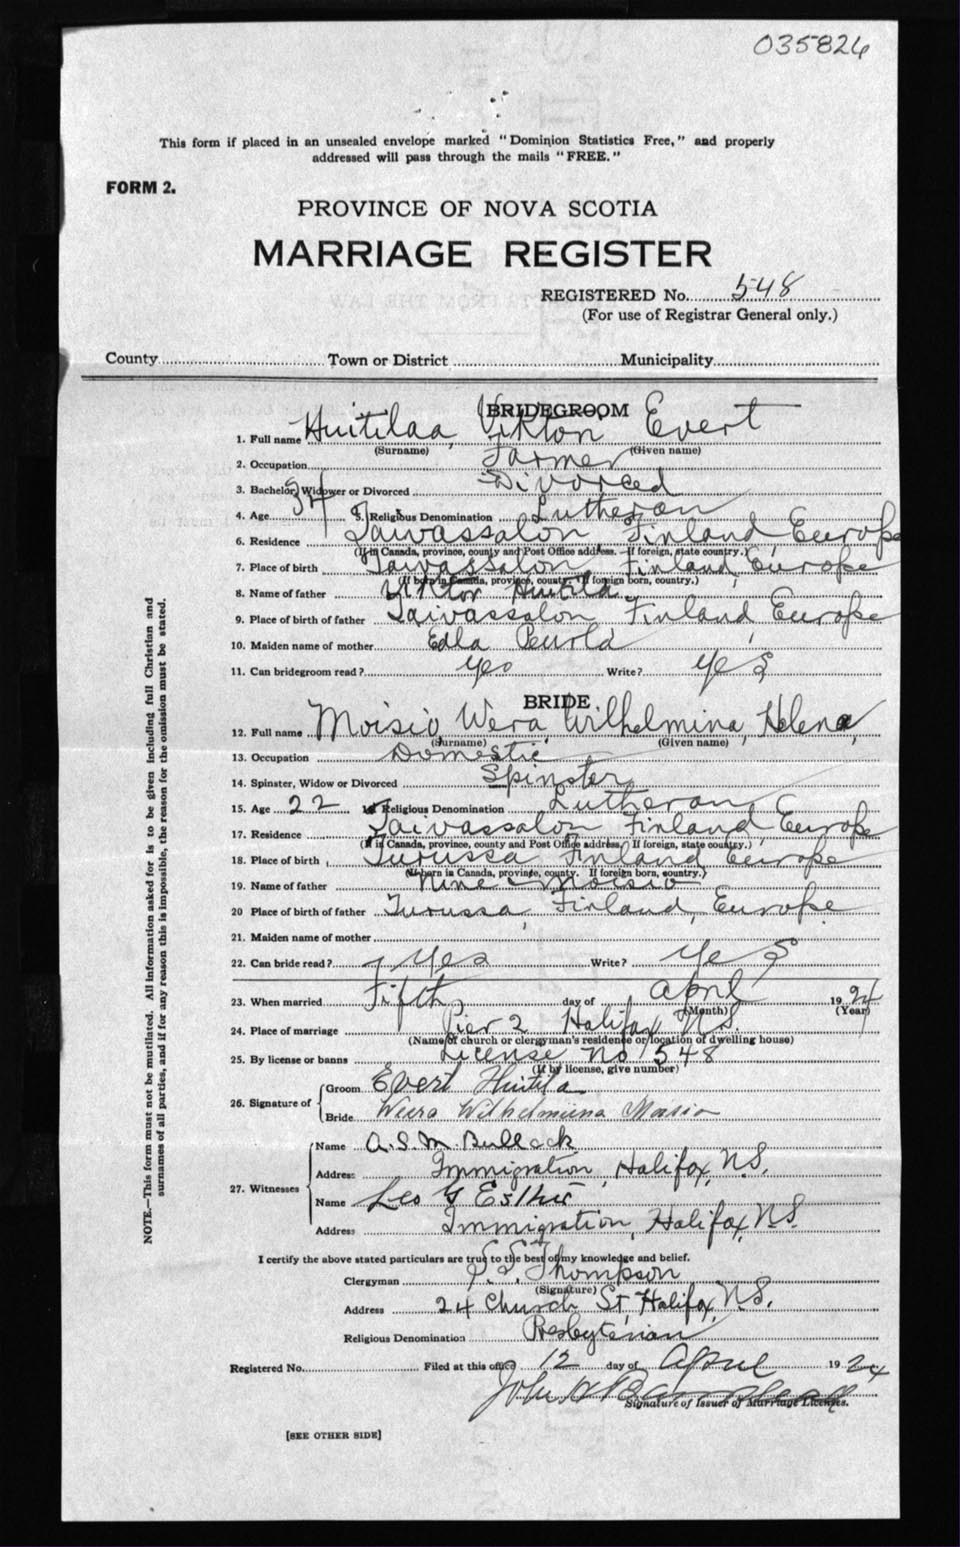 035826
This form if placed in an unsealed envelope marked "Dominion Statistics Free," and properly
addressed will pass through the mails "FREE."
FORM 2.
PROVINCE OF NOVA SCOTIA
MARRIAGE REGISTER
REGISTERED No. 548
(For use of Registrar General only.)
County Town or District Municipality
BRIDEGROOM
1. Full name Huitilaa, Viktor Evert
(Surname) (Given name)
2. Occupation Farmer
3. Bachelor, Widower or Divorced Divorced
4. Age 34 5. Religious Denomination Lutheran
6. Residence Taivassalon Finland Europe
(If in Canada, province, county and Post Office address. If foreign, state country.)
7. Place of birth Taivassalon, Finland, Europe
(If born in Canada, province, county. If foreign born, country.)
8. Name of father Viktor Huitila
9. Place of birth of father Taivassalon Finland, Europe
10. Maiden name of mother Edla
11. Can bridegroom read? yes Write? yes
BRIDE
12. Full name Moisio, Wera, Wilhelmina, Helena,
(Surname) (Given name)
13. Occupation Domestic
14. Spinster, Widow or Divorced Spinster
15. Age 22 16. Religious Denomination Lutheran
17. Residence Taivassalon Finland Europe
(If in Canada, province, county and Post Office address. If foreign, state country.)
18. Place of birth Turussa Finland Europe
(If born in Canada, province, county. If foreign born, country.)
19. Name of father Moisio
20 Place of birth of father Turussa, Finland, Europe
21. Maiden name of mother
22. Can bride read? Yes Write? Yes
23. When married Fifth day of April 1924
(Month) (Year)
24. Place of marriage Pier 2 Halifax N.S.
(Name of church or clergyman's residence or location of dwelling house)
25. By license or banns License no 548
(If by license, give number)
26. Signature of
Groom Evert Huitila
Bride Weera Wilhelmiina Moisio
27. Witnesses
Name A.S.M. Bullock
Address Immigration, Halifax, N.S.
Name Leo G
Address Immigration, Halifax, N.S.
I certify the above stated particulars are true to the best of my knowledge and belief.
Clergyman S.S. Thompson
(Signature)
Address 24 Church St, Halifax, N.S.
Religious Denomination Presbyterian
Registered No. Filed at this office 12 day of April 1924
John
Signature of Issuer of Marriage Licenses.
[SEE OTHER SIDE]
NOTE.—This form must not be mutilated. All information asked for is to be given including full Christian and
surnames of all parties, and if for any reason this is impossible, the reason for the omission must be stated.